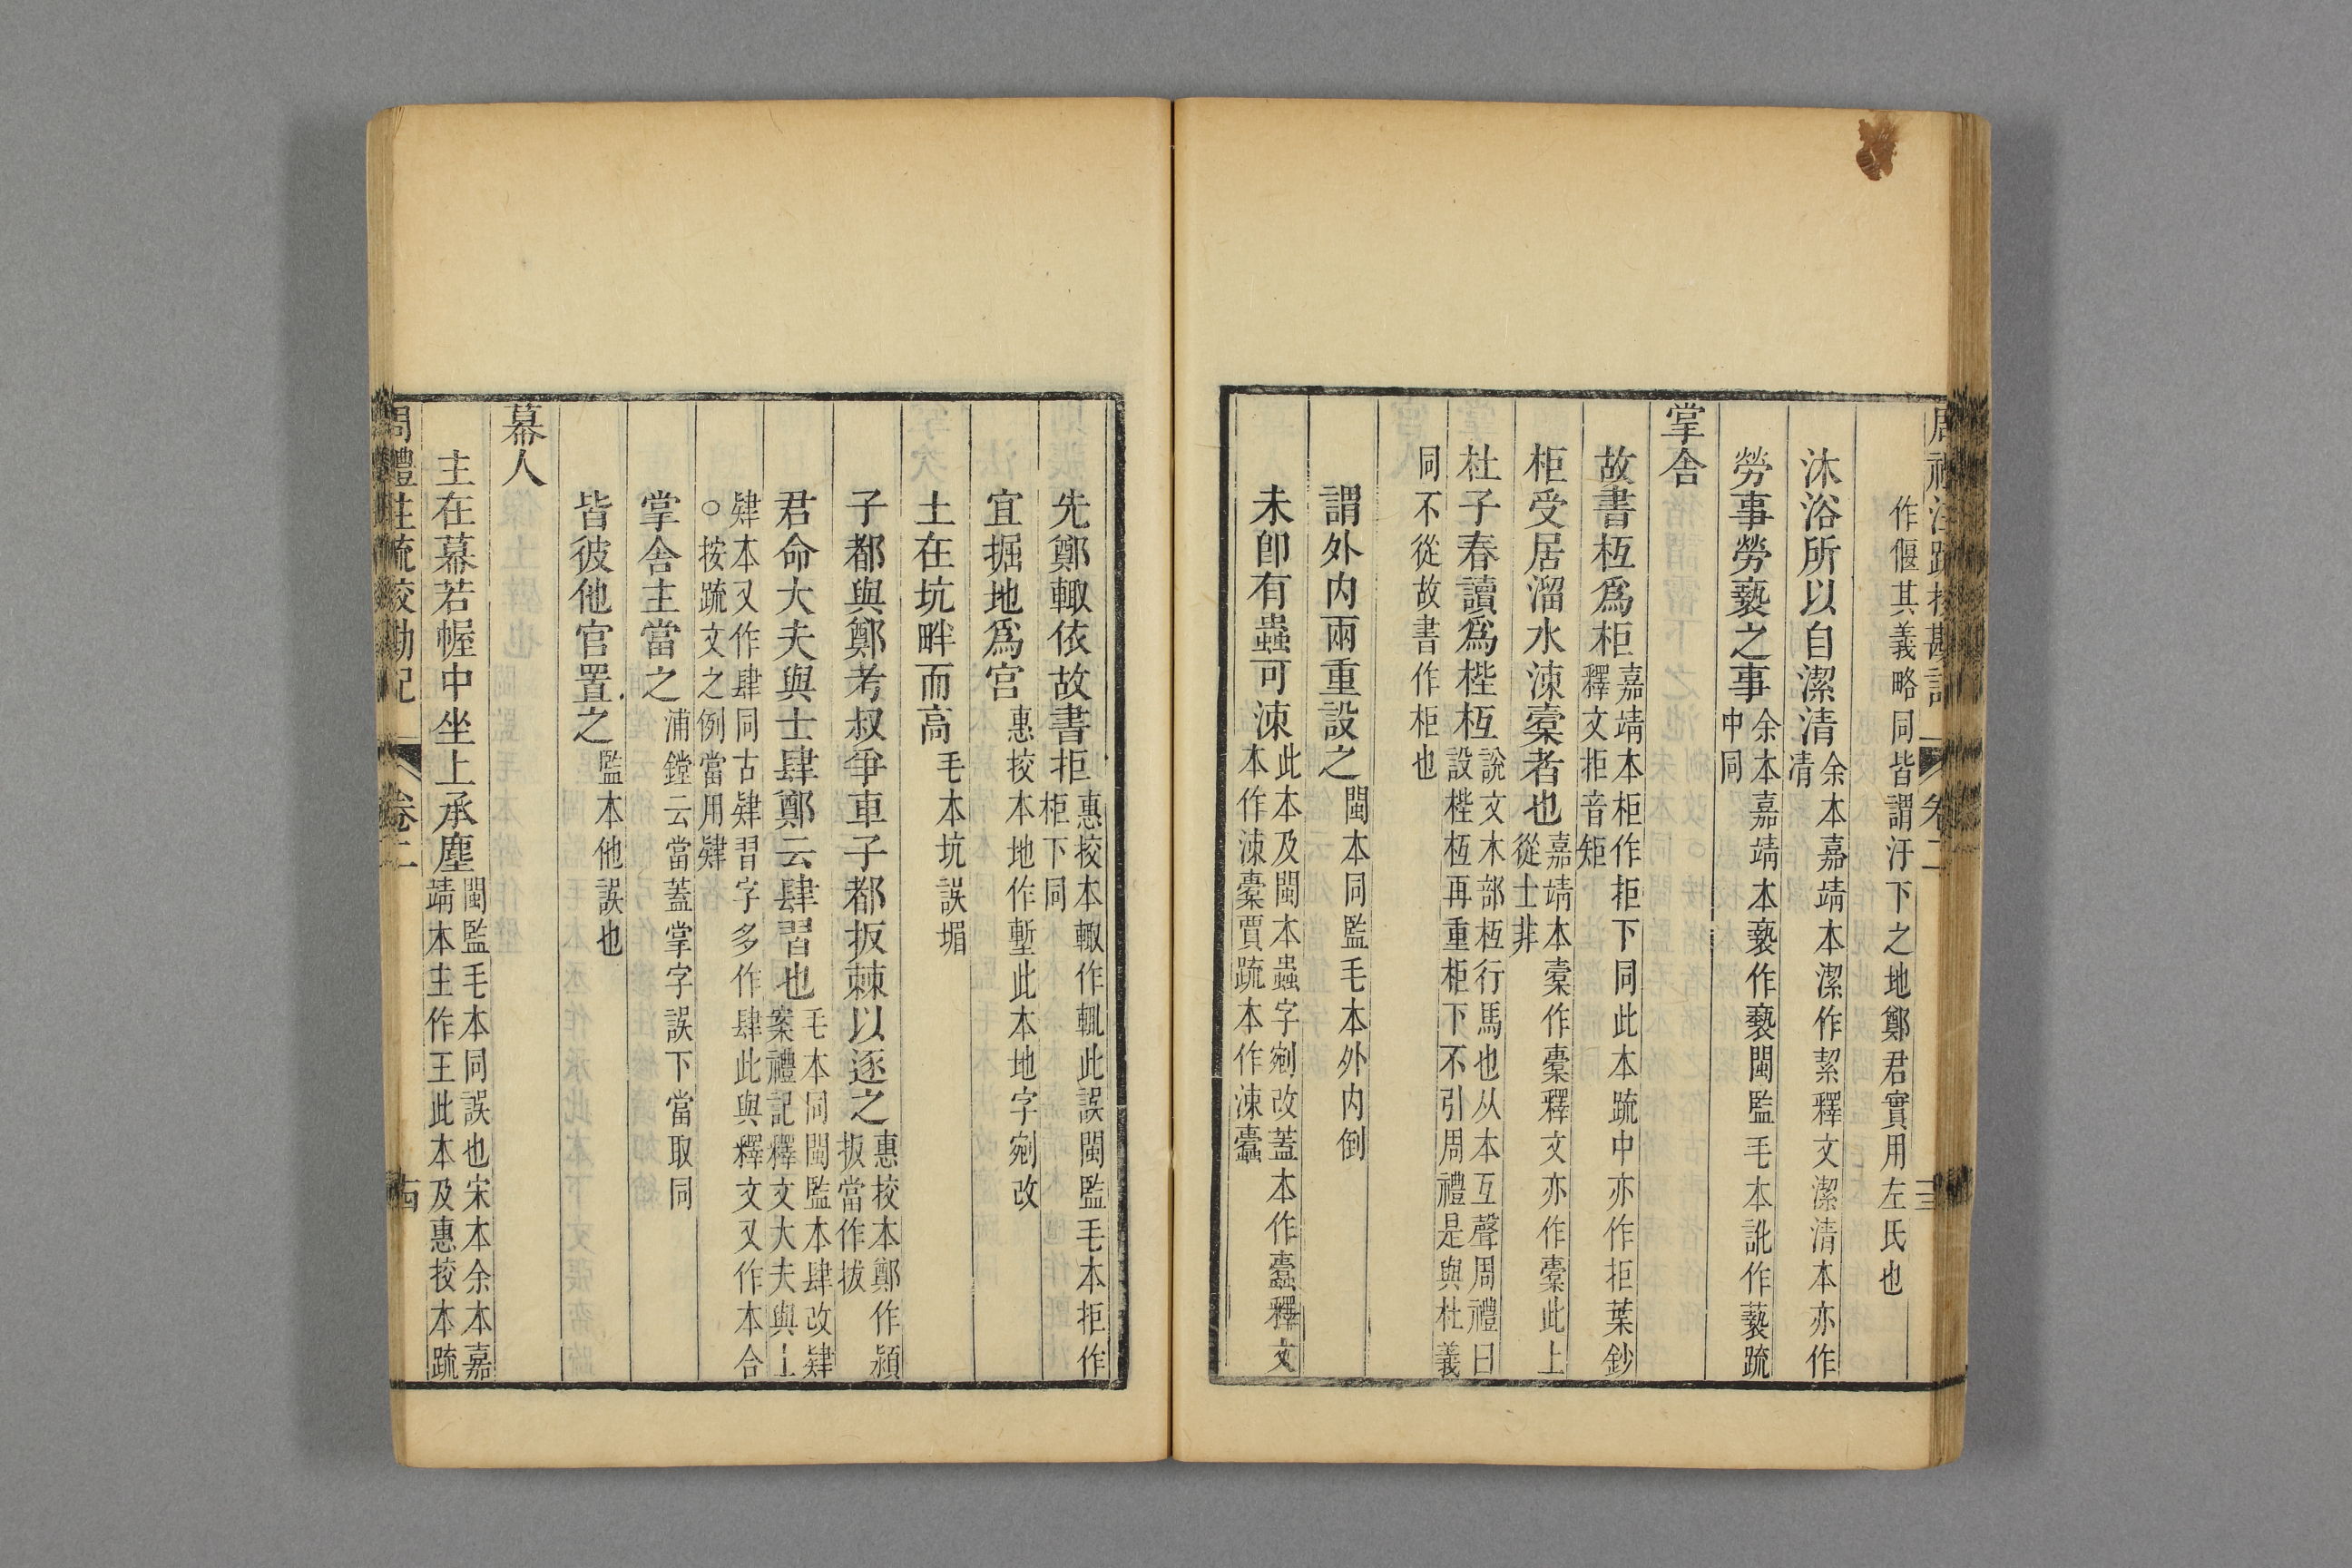 周禮注疏校勘記 卷二 三
作偃其義略同皆謂汙下之地鄭君實用左氏也
沐浴所以自潔清余本嘉靖本潔作絜釋文潔清本亦作凊
勞事勞褻之事余本嘉靖本褻作褻閩監毛本訛作藝疏中同
掌舍
故書枑爲柜嘉靖本柜作拒下同此本疏中亦作拒葉鈔釋文拒音矩
柜受居溜水涑橐者也嘉靖本橐作櫜釋文亦作櫜此上從士非
杜子春讀爲梐枑說文木部枑行馬也从木互聲周禮曰設梐枑再重柜下不引周禮是與杜義
同不從故書作柜也
謂外內兩重設之閩本同監毛本外內倒
未卽有蟲可涑此本及閩本蟲字剜改蓋本作蠹釋文本作涑櫜賈疏本作涑蠹
先鄭輙依故書拒惠挍本輙作輒此誤閩監毛本拒作柜下同
宜掘地爲宮惠挍本地作塹此本地字剜改
土在坑畔而高毛本坑誤堳
子都與鄭考叔爭車子都扳棘以逐之惠挍本鄭作潁扳當作拔
君命大夫與士肆鄭云肆習也毛本同閩監本肆改肄案禮記釋文大夫與士
肄本又作肆同古肄習字多作肆此與釋文又作本合
○按疏文之例當用肄
掌舍主當之浦鏜云當蓋掌字誤下當取同
皆彼他官置之監本他誤也
幕人
主在幕若幄中坐上承塵閩監毛本同誤也宋本余本嘉靖本主作王此本及惠挍本疏
周禮注疏校勘記 卷二 十四